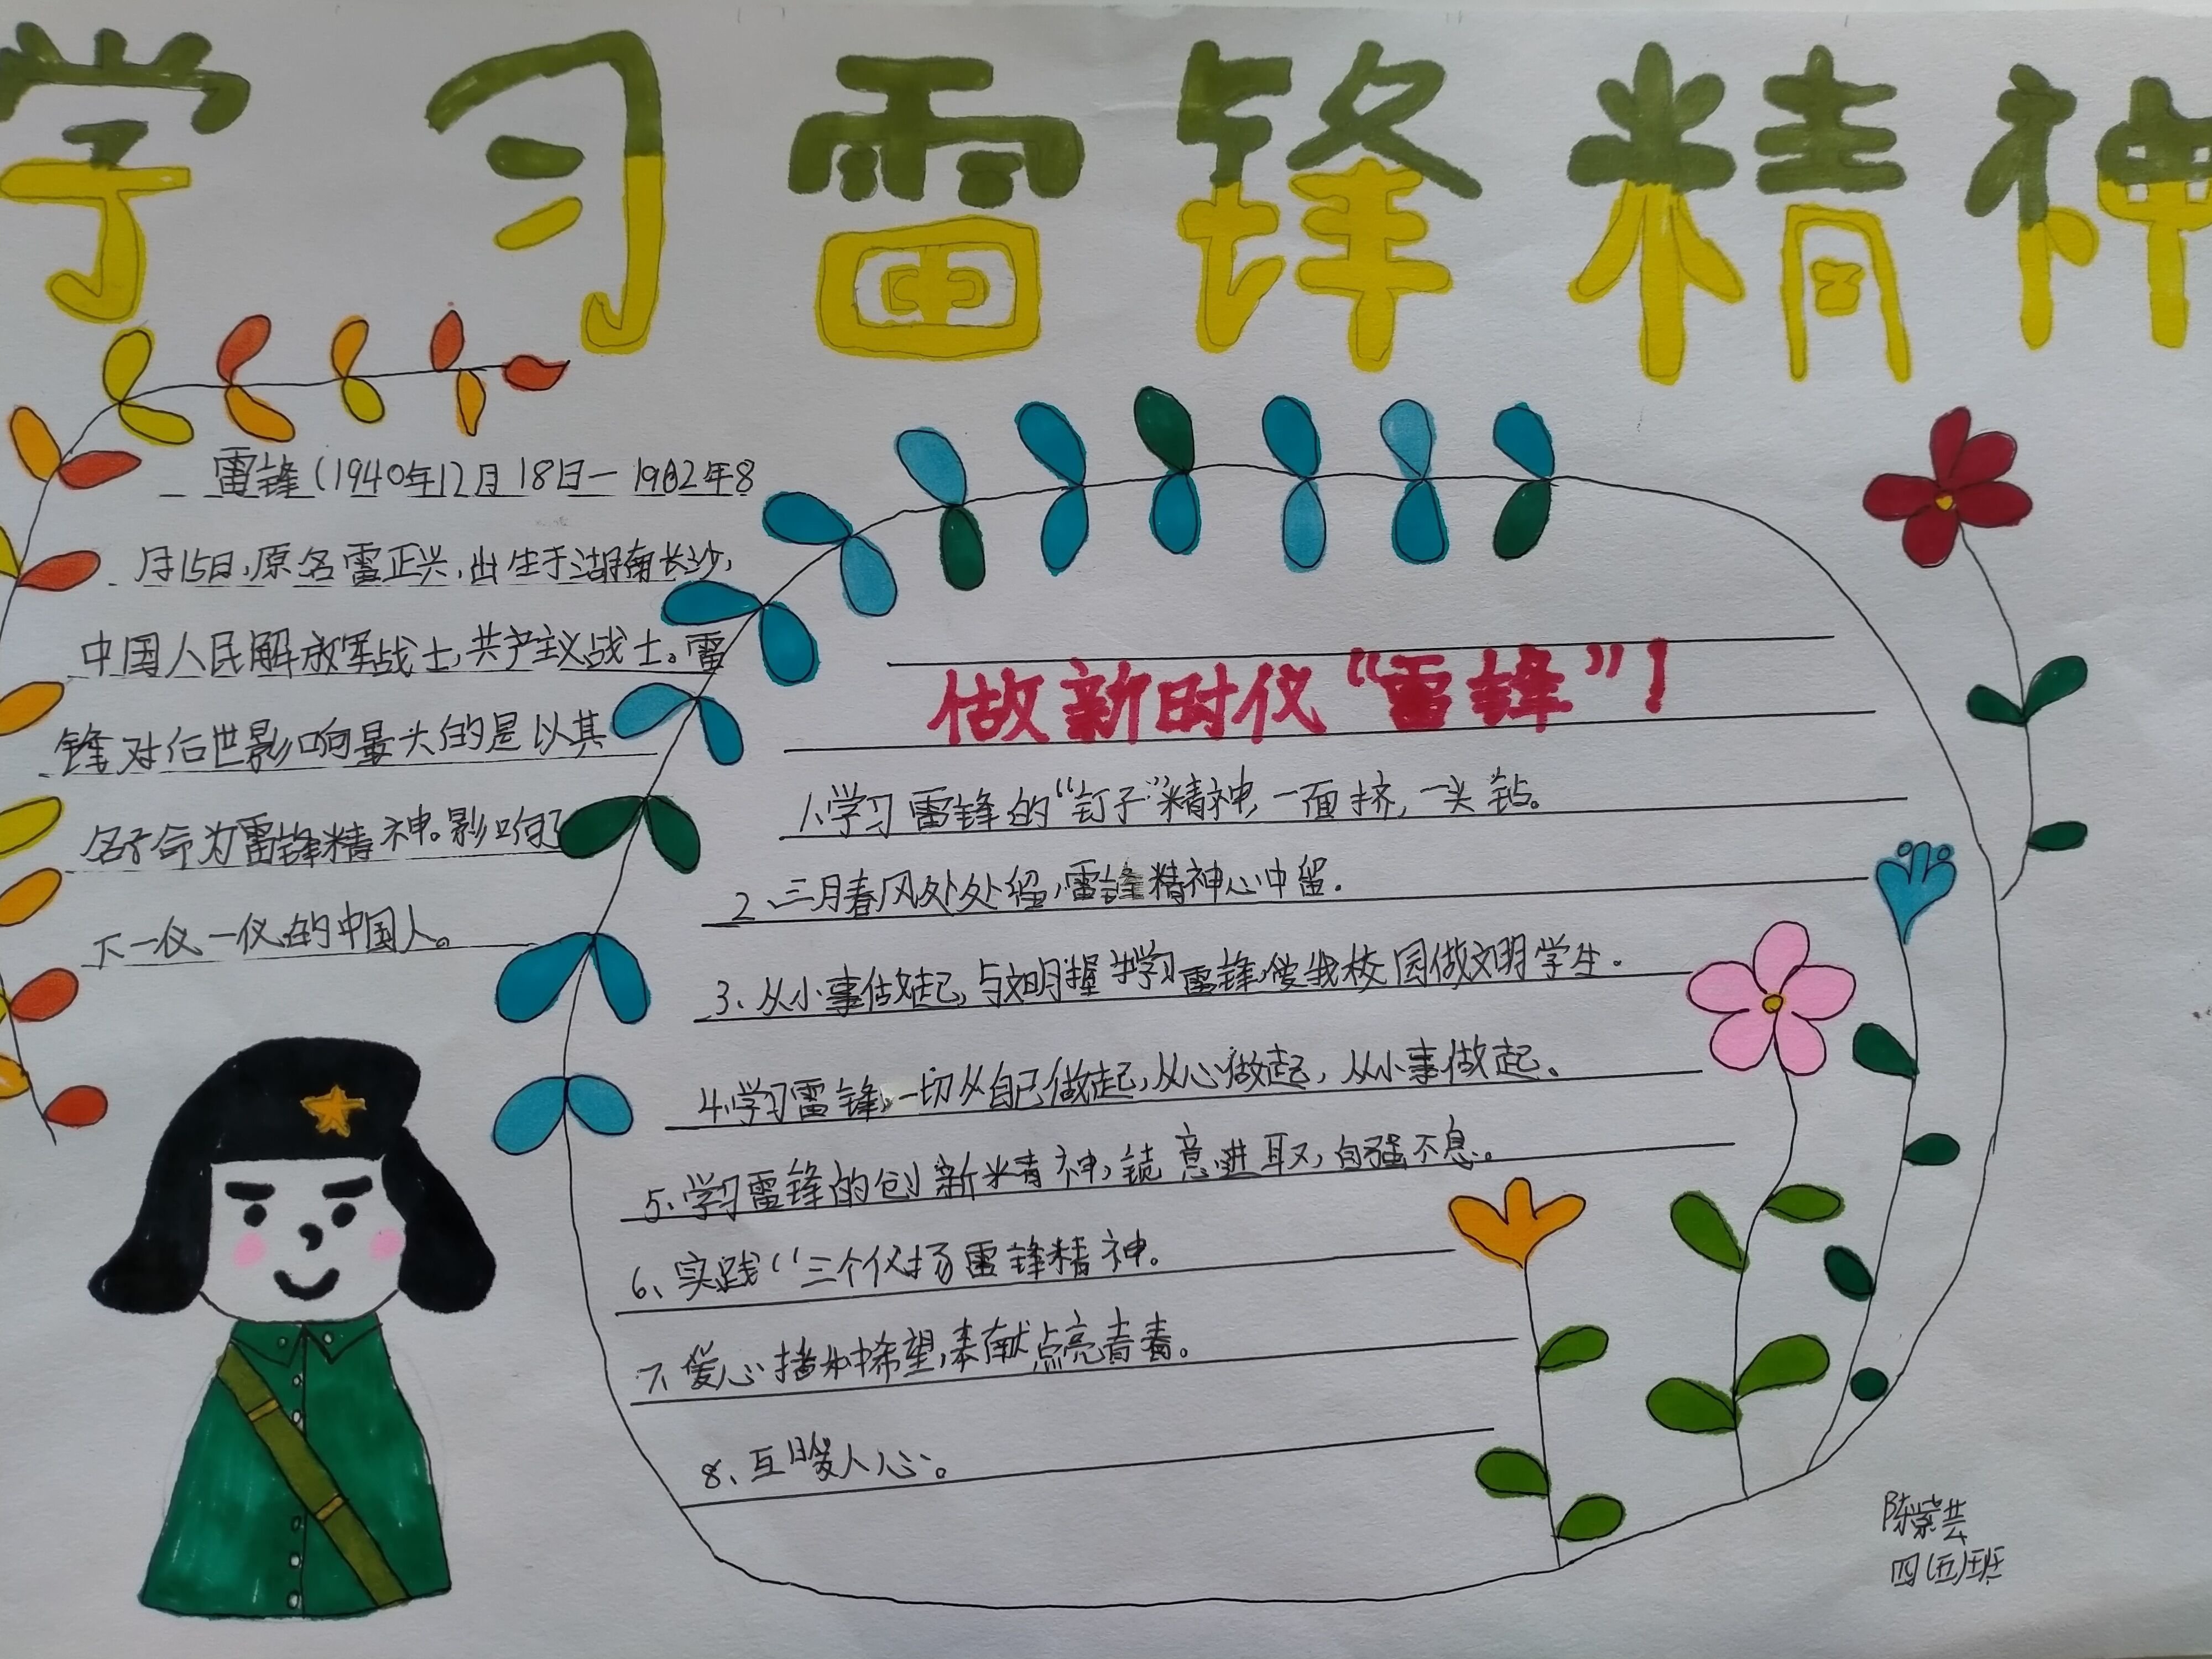 学习雷锋精神
雷锋(1940年12月18日一1962年8
月15日,原名雷正兴,出生于湖南长沙,
中国人民解放军战士,共产主义战士。雷
锋对后世影响最大的是以其
名子命为雷锋精神。影响了
下一仪一仪的中国人。
做新时仪“雷锋”!
1、学习雷锋的“钉子”精神,一面挤,一头钻。
2、三月春风处处留,雷锋精神心中留.
3、从小事做起,与文明握 学习雷锋,使我校园做文明学生.
4、学习雷锋,一切从自己做起,从心做起,从小事做起、
5、学习雷锋的创新精神,锐意进取,自强不息。
6、实践“三个仪扬雷锋精神。
7、爱心播种希望,奉献点亮青春。
8、互暖人心。
陈紫芸
四(五)班